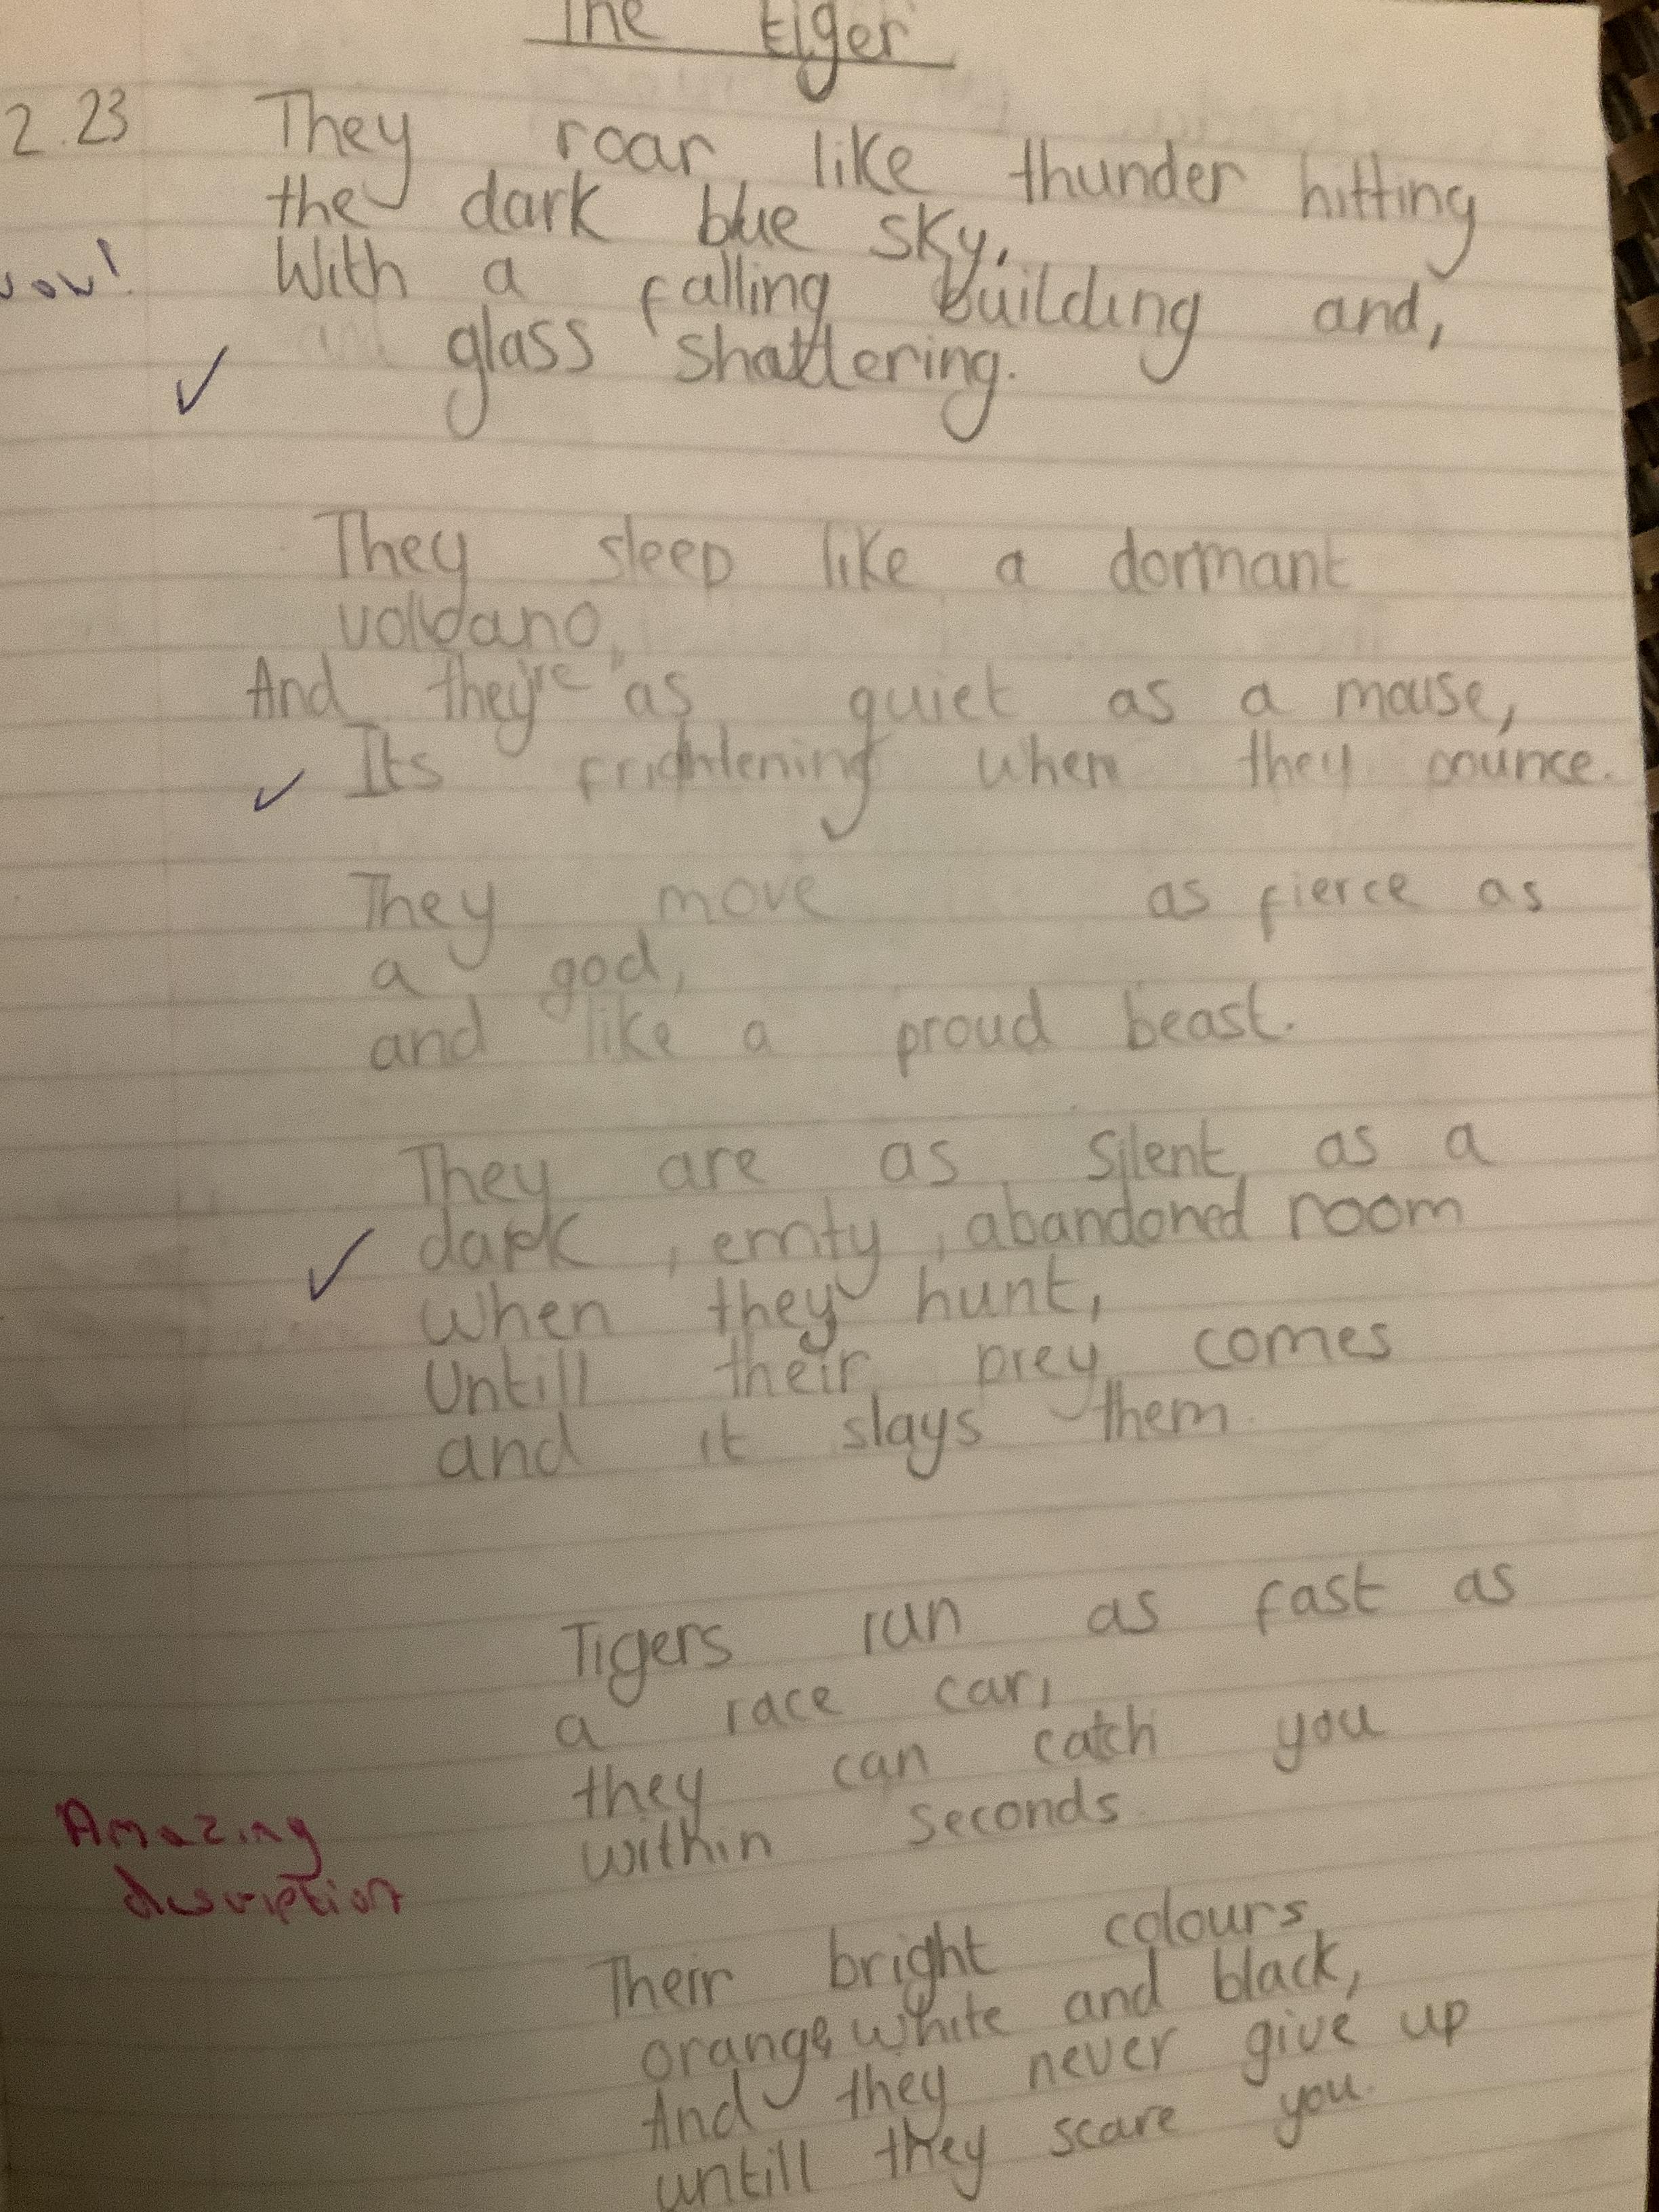 The tiger
2.23 They roar like thunder hitting
the dark blue sky,
wow! With a falling building and,
glass shattering.
They sleep like a dormant
volcano,
And they're as quiet as a mouse,
Its frightening when they pounce.
They move as fierce as
a god,
and like a proud beast.
They are as silent as a
dark, emty, abandoned room
when they hunt,
Untill their prey comes
and it slays them.
Tigers run as fast as
a race car,
they can catch you
within seconds.
Amazing
description
Their bright colours
orange, white and black,
And they never give up
untill they scare you.